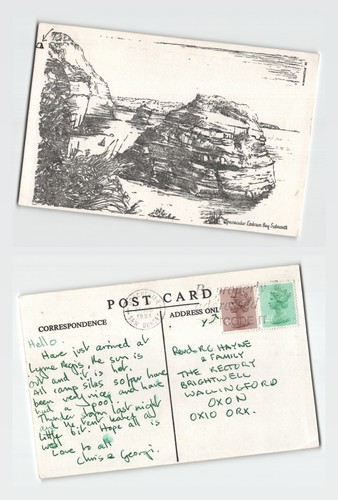 Ladram Bay Sidmouth
POST CARD
CORRESPONDENCE
ADDRESS ONLY
Hello.
Have just arrived at
Lyme Regis. The sun is
out and it is hot.
All camp sites so far have
been very nice and have
had a pool.
Thunder storm last night
and the tent leaked a
little bit. Hope all is
well
Love to all
Chris & Georgi.
Rev. & Mrs G HAYNE
& FAMILY
THE RECTORY
BRIGHTWELL
WALLINGFORD
OXON
OX10 0RX.